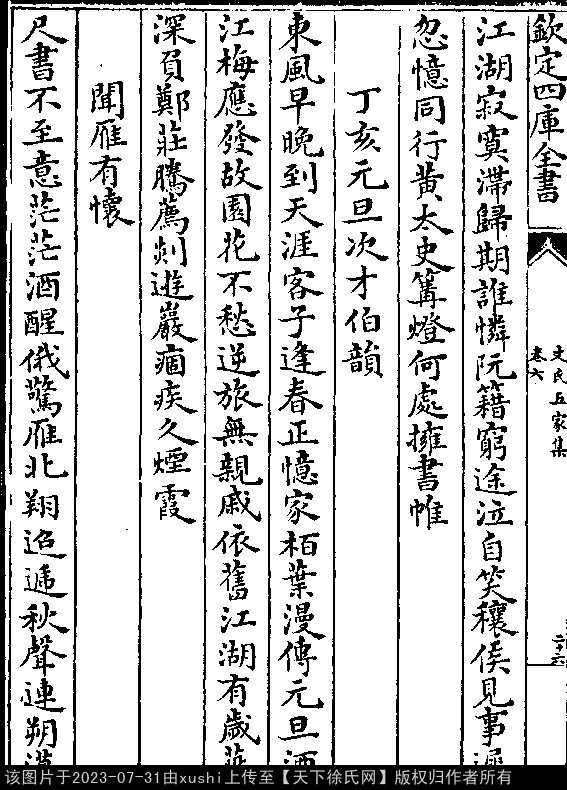 欽定四庫全書
文氏五家集
卷六
江湖寂寞滯歸期誰憐阮籍窮途泣自笑穰侯見事遲
忽憶同行黄太史篝燈何處擁書帷
丁亥元旦次才伯韻
東風早晚到天涯客子逢春正憶家栢葉漫傳元旦酒
江梅應發故園花不愁逆旅無親戚依舊江湖有歲
深負鄭莊騰薦剡遊巖痼疾久煙霞
聞雁有懷
尺書不至意茫茫酒醒俄驚雁北翔迢遞秋聲連朔漠
该图片于2023-07-31由xushi上传至【天下徐氏网】版权归作者所有